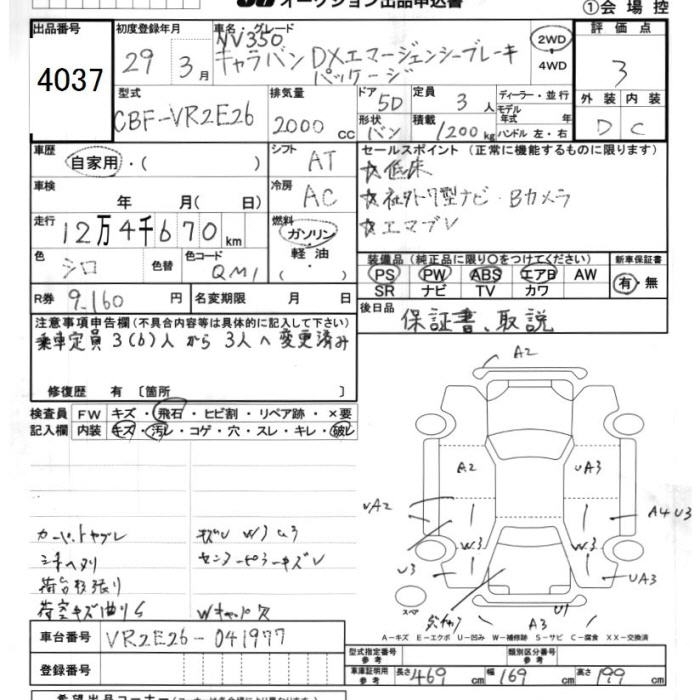 オークション出品申込書
①会場控
出品番号 4037
初度登録年月 29年 3月
車名・グレード NV350 キャラバン DXエマージェンシーブレーキ パッケージ
2WD・4WD
評価点 3
外装 D 内装 C
型式 CBF-VR2E26
排気量 2000 cc
ドア 5D 定員 3人
形状 バン 積載 1200kg
ディーラー・並行
モデル年式 年式
ハンドル 左・右
車歴 自家用・( )
シフト AT
セールスポイント (正常に機能するものに限ります)
☆低床
☆社外トワ型ナビ・Bカメラ
☆エマブレ
車検 年 月( 日)
冷房 AC
走行 12万4千670km
燃料 ガソリン・軽油・( )
色 シロ 色替 色コード QM1
装備品 (純正品に限り○をつけてください)
PS PW ABS エアB AW
SR ナビ TV カワ
新車保証書 有・無
R券 9,160円
名変期限 月 日
後日品 保証書、取説
注意事項申告欄 (不具合内容等は具体的に記入して下さい)
乗車定員 3(6)人から3人へ変更済み
修復歴 有 〔箇所 〕
検査員記入欄
FW キズ・飛石・ヒビ割・リペア跡・×要
内装 キズ・汚レ・コゲ・穴・スレ・キレ・破レ
カーペットヤブレ
荷台キズ曲り
センターピラーキズ
A2
A2
UA3
UA2
A4 U3
W3
W3
U3
UA3
U1
A3
スペア
A-キズ E-エクボ U-凹み W-補修跡 S-サビ C-腐食 XX-交換済
車台番号 VR2E26-041977
登録番号
型式指定番号 参考
類別区分番号 参考
車庫証明用 参考 長さ 469cm 幅 169cm 高さ 199cm
希望出品コーナー